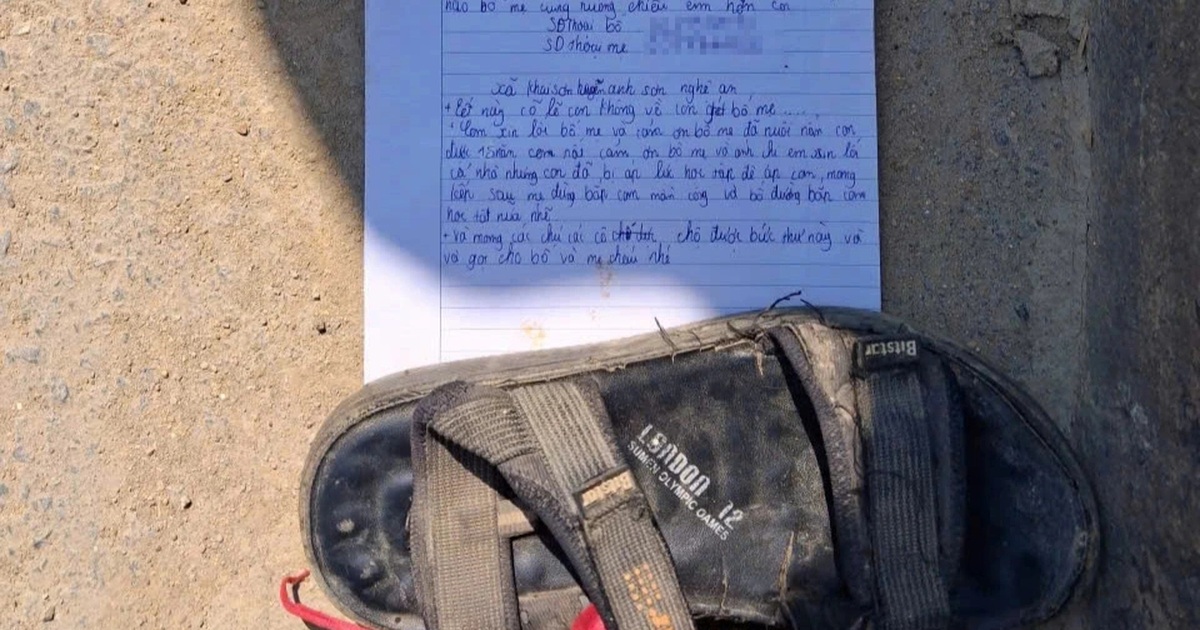 nào bố mẹ cũng nuông chiều em hơn con
SĐthoại bố
SD thoại mẹ
xã khai sơn huyện anh sơn nghệ an
+ tết này có lẽ con không về với bố mẹ .....,
+ Con xin lỗi bố mẹ và cảm ơn bố mẹ đã nuôi nấng con
được 15 năm con nói cảm ơn bố mẹ và anh chị em xin lỗi
cả nhà nhưng con đã bị áp lực học tập đè áp con, mong
kiếp sau mẹ đừng bắt con mần công và bố đừng bắt con
học tốt nữa nhé
+ Và mong các chú các cô chó được bức thư này và
và gọi cho bố và mẹ cháu nhé
Bitstar
LONDON 12
SUMEN OLYMPIC GAMES
Bitstar